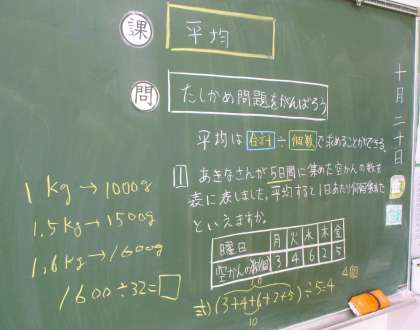 課
平均
問
たしかめ問題をがんばろう
平均は合計÷個数で求めることができる。
1 あきなさんが5日間に集めた空かんの数を
表に表しました。平均すると1日あたり何個集めた
といえますか。
曜日 月 火 水 木 金
空かんの数(個) 3 4 6 2 5
式(3+4+6+2+5)÷5=4
10
10
4個
十月二十日
1kg→1000g
1.5kg→1500g
1.6kg→1600g
1600÷32=□